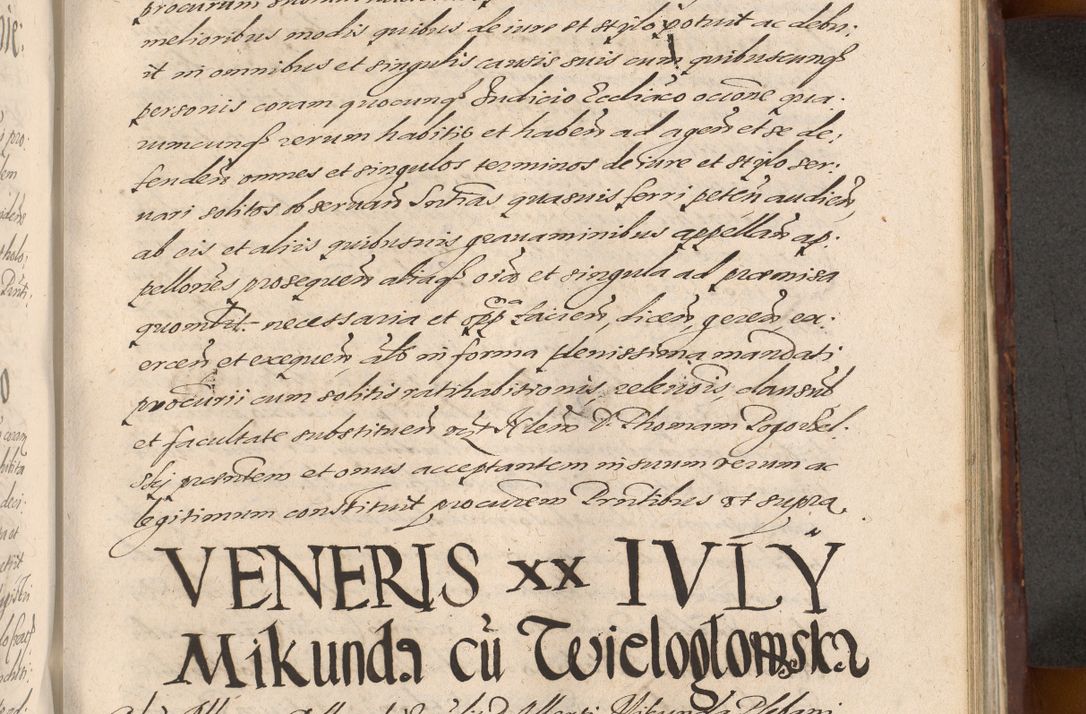 melioribus modis quibus de iure et stylo potuit ac debu:
it in omnibus et singulis causis suis cum quibuscunq
personis coram quocunq Iudicio Eccliaco ocione qua:
rumcunq rerum habitis et haben ad agen et se de:
fenden omnes et singulos terminos de iure et stylo ser:
uari solitos obseruan Sntias quasuis ferri peten audien,
ab eis et aliis quibusuis grauaminibus appellan ap:
pellones prosequen aliaq oia et singula ad præmisa
necessaria et opp facien, dicen, geren, ex:
ercen et exequen in forma plenissima mandati
procurii cum solitis ratihabitionis, releuois, clausul
et facultate substituen D. Thomam Pogorzel:
skj præsentem et onus acceptantem in suum verum ac
legitimum constituit procurem Prntibus ut supra.
VENERIS xx IVLY
Mikunda cū Wielogłowska